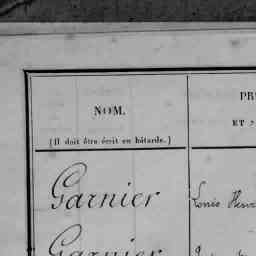 NOM.
(Il doit être écrit en bâtarde.)
PR
ET
Garnier
Louis Henri
Garnier